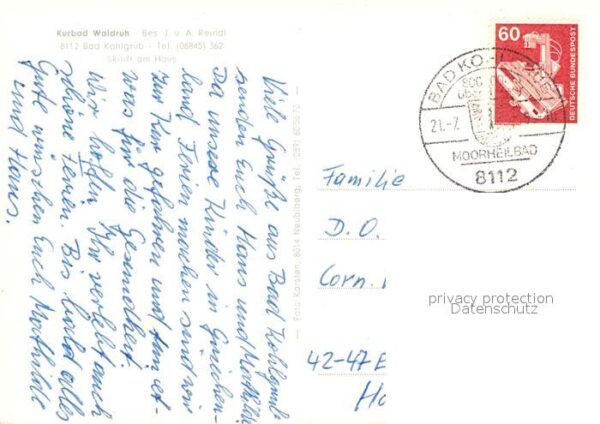 Kurbad Waldruh Bes. J. u. A. Reindl
8112 Bad Kohlgrub - Tel. (08845) 362
Skilift am Haus
Viele Grüße aus Bad Kohlgrub
senden Euch Hans und Mathilde
Da unsere Kinder in Griechen-
land Ferien machen sind wir
zur Kur gefahren und tun et-
was für die Gesundheit.
Wir hoffen, Ihr verlebt auch
schöne Ferien. Bis bald alles
Gute wünschen Euch Mathilde
und Hans.
Foto Karsten, 8014 Neubiberg, Tel. (089)
60
DEUTSCHE BUNDESPOST
BAD KO
21.-7.
MOORHEILBAD
8112
Familie
D. O.
Corn.
42-47 E
Ha
privacy protection
Datenschutz